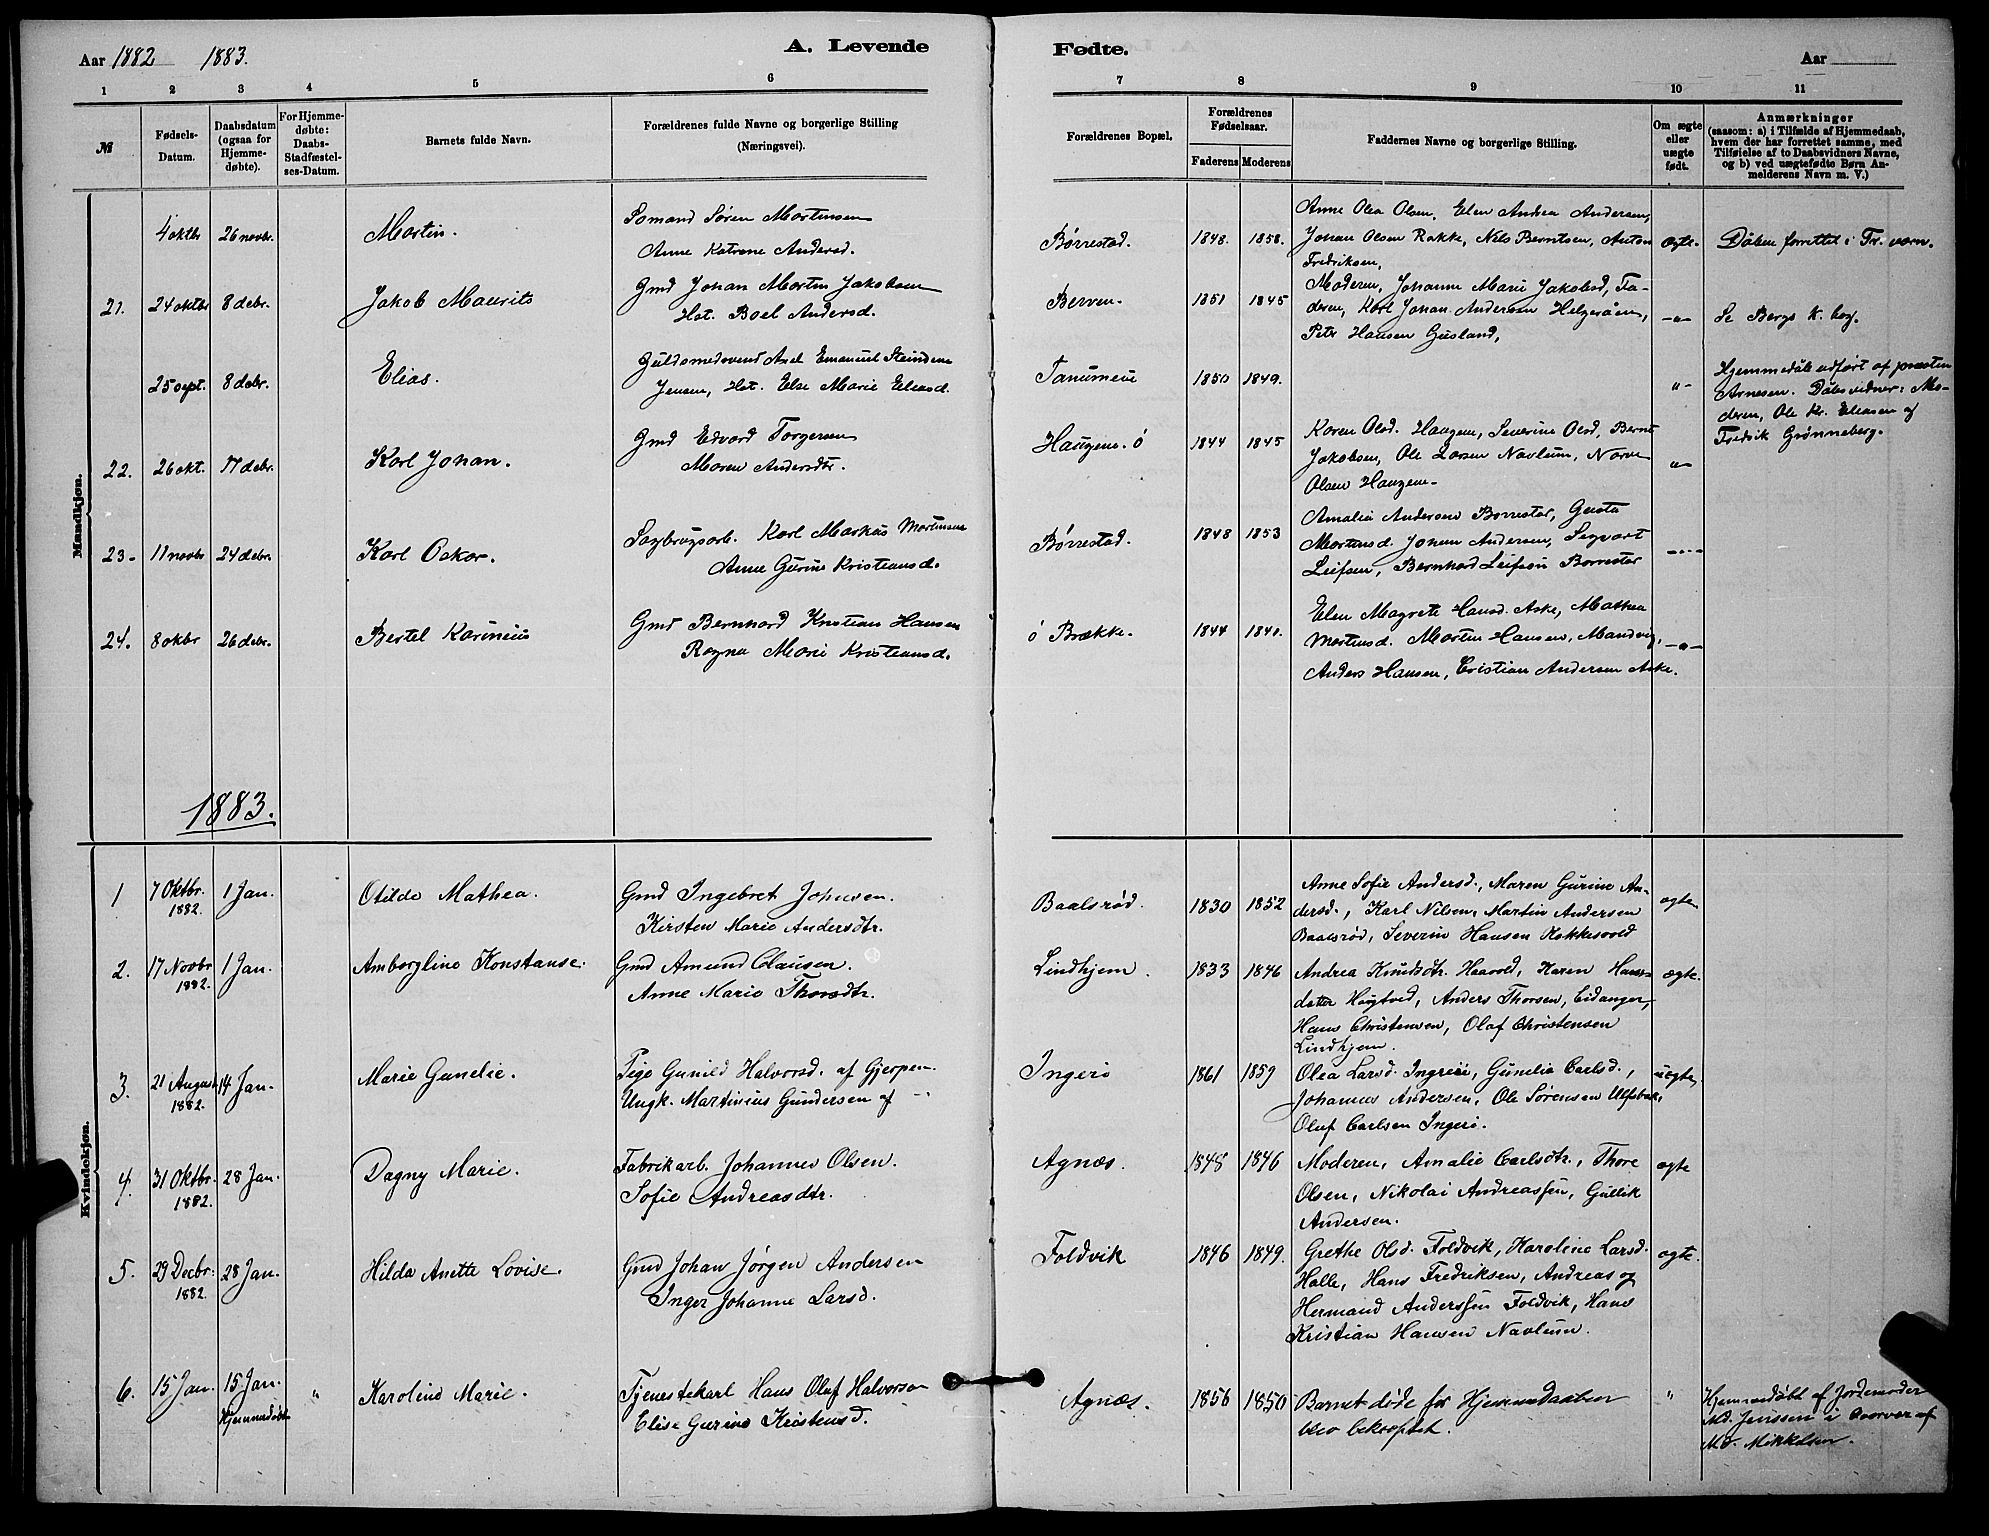 Aar 1882 1883.
A. Levende
Fødte.
Aar
1 2 3 4 5 6 7 8 9 10 11
№
Fødsels-Datum.
Daabsdatum (ogsaa for Hjemmedøbte).
For Hjemmedøbte: Daabs-Stadfæstelses-Datum.
Barnets fulde Navn.
Forældrenes fulde Navne og borgerlige Stilling (Næringsvei).
Forældrenes Bopæl.
Forældrenes Fødselsaar.
Faderens Moderens
Faddernes Navne og borgerlige Stilling.
Om ægte eller uægte født.
Anmærkninger
(saasom: a) i Tilfælde af Hjemmedaab,
hvem der har forrettet samme, med
Tilføielse af to Daabsvidners Navne,
og b) ved uægtefødte Børn An-
melderens Navn m. V.)
Mandkjøn.
4 oktbr 26 novbr. Martin.
Sømand Søren Mortensen
Anne Katrene Andersd.
Børrestad. 1848. 1858.
Anne Olea Olsen, Elen Andrea Andersen,
Johan Olsen Rakke, Nils Berntsen, Anton
Fredriksen,
ægte. Dåben forrettet i Fr.værn.
21. 24 oktbr 8 debr. Jakob Maurits
Gmd Johan Martin Jakobsen
Hst. Boel Andersd.
Berven. 1851 1845
Moderen, Johanne Marie Jakobsd, Fa-
deren, Karl Johan Andersen Helgeråen,
Peter Hansen Gusland,
—„— Se Bergs k. bog.
25 sept. 8 debr. Elias.
Guldsmedsvend Axel Emanuel
Jensen, Hst. Else Marie Eliasd.
Tanumeie 1850 1849.
„—
Hjemmedåb udført af præsten
Arnesen. Dåbsvidner: Mo-
deren, Ole Kr. Eliasen af
Fredrik Grønneberg.
22. 26 okt. 17 debr. Karl Johan.
Gmd Edvard Torgersen
Maren Andersdtr.
Haugene. ö 1844 1845
Karen Olsd. Haugene, Severine Olsd, Bernt
Jakobsen, Ole Larsen Navlum,
Olsen Haugene
„—
23- 11 novbr 24 debr. Karl Oskar.
Sagbrugsarb. Karl Markus Mortensen
Anne Gurine Kristiansd.
Børrestad. 1848 1853
Amalie Andersen Borrestad, Gusta
Mortensd. Johan Andersen, Sigvart
Leifsen, Bernhard Leifsen Borrestad
24. 8 okbr 26 debr. Bertel Karinius
Gmd Bernhard Kristian Hansen
Ragna Marie Kristiansd.
ö Brække. 1844 1840.
Elen Magrete Hansd. Aske, Mathea
Mortensd. Morten Hansen, Mandvig,
Anders Hansen, Cristian Andersen Aske.
—„—
1883.
Kvindekjøn.
1 7 Oktbr. 1882. 1 Jan. Otilde Mathea.
Gmd Ingebret Johnsen
Kirsten Marie Andersdtr.
Baalsrød. 1830 1852
Anne Sofie Andersd., Maren Gurine An-
dersd., Karl Nilsen, Martin Andersen
Baalsrød, Severin Hansen Hokkesvold
ægte
2. 17 Novbr 1882. 1 Jan. Amborgline Konstanse.
Gmd Amund Clausen.
Anne Marie Thorsdtr.
Lindhjem. 1833 1846
Andrea Knudsdtr. Haavød, Karen Hans-
datter Høgtved, Anders Thorsen, Eidanger,
Hans Christensen, Olaf Christensen
Lindhjem.
ægte.
3. 21 August 1882. 14 Jan. Marie Gunelie.
Pige Gunild Halvorsd. af Gjerpen
Ungk. Martinius Gundersen af —"—
Ingerö 1861 1859
Olea Larsd. Ingerö, Gunelie Carlsd.,
Johannes Andersen, Ole Sørensen Ulfsbak,
Oluf Carlsen Ingerö.
uægte.
4. 31 Oktbr. 1882. 28 Jan. Dagny Marie.
Fabrikarb. Johannes Olsen.
Sofie Andreasdtr.
Agnæs. 1848 1846
Moderen, Amalie Carlsdtr., Thore
Olsen, Nikolai Andreassen, Gullik
Andersen.
ægte
5. 29 Decbr. 1882. 28 Jan. Hilda Anette Lovise.
Gmd Johan Jørgen Andersen
Inger Johanne Larsd.
Foldvik 1846 1849.
Grethe Olsd. Foldvik, Karoline Larsd.
Halle, Hans Fredriksen, Andreas og
Hermand Anderssen Foldvik, Hans
Kristian Hansen Navlum.
ægte.
6. 15 Jan. 15 Jan. Hjemmedøbt „ Karoline Marie.
Tjenestekarl Hans Oluf Halvorsen
Elise Gurine Kristensd.
Agnæs. 1856 1850
Barnet døde før Hjemmedaaben
blev bekræftet.
„
Hjemmedøbt af Jordemoder
Md. Jenssen i Overvær af
Md. Mikkelsen.